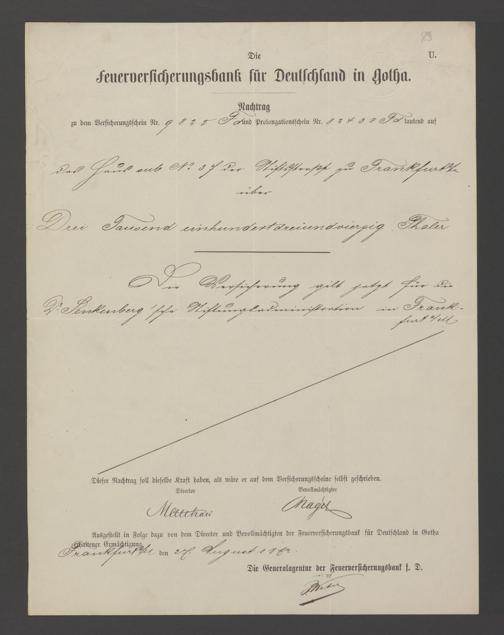 Die
U.
Feuerversicherungsbank für Deutschland in Gotha.
Nachtrag
zu dem Versicherungsschein Nr. 9825 und Prolongationsschein Nr. lautend auf
das Haus sub No 37 der Stiftstraße zu Frankfurt
über
Drei Tausend einhundertdreiundvierzig Thaler
Die Versicherung gilt jetzt für die
Dr Senkenberg'sche Stiftungsadministration in Frank-
furt a/M
Dieser Nachtrag soll dieselbe Kraft haben, als wäre er auf dem Versicherungsscheine selbst geschrieben.
Director
Bevollmächtigter
Nagel
Ausgestellt in Folge dazu von dem Director und Bevollmächtigten der Feuerversicherungsbank für Deutschland in Gotha
erhaltener Ermächtigung.
Frankfurt den August
Die Generalagentur der Feuerversicherungsbank f. D.